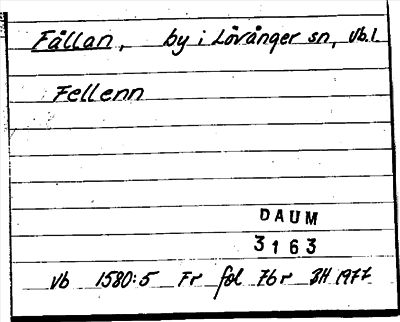 Fällan, by i Lövånger sn, Vb.l.
Fellenn
DAUM
3163
Vb 1580:5 Fr fol 7br BH 1977